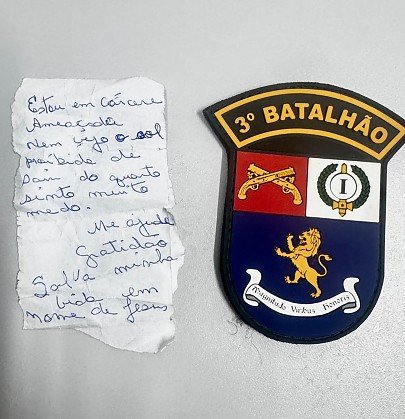 Estou em Cárcere
Ameaçada
Nem vejo o sol
proibida de
sair do quarto
sinto muito
medo.
Me ajuda
gratidão
Salva minha
vida em
nome de Jesus
3º BATALHÃO
I
Magnitudo Virtus Honoris